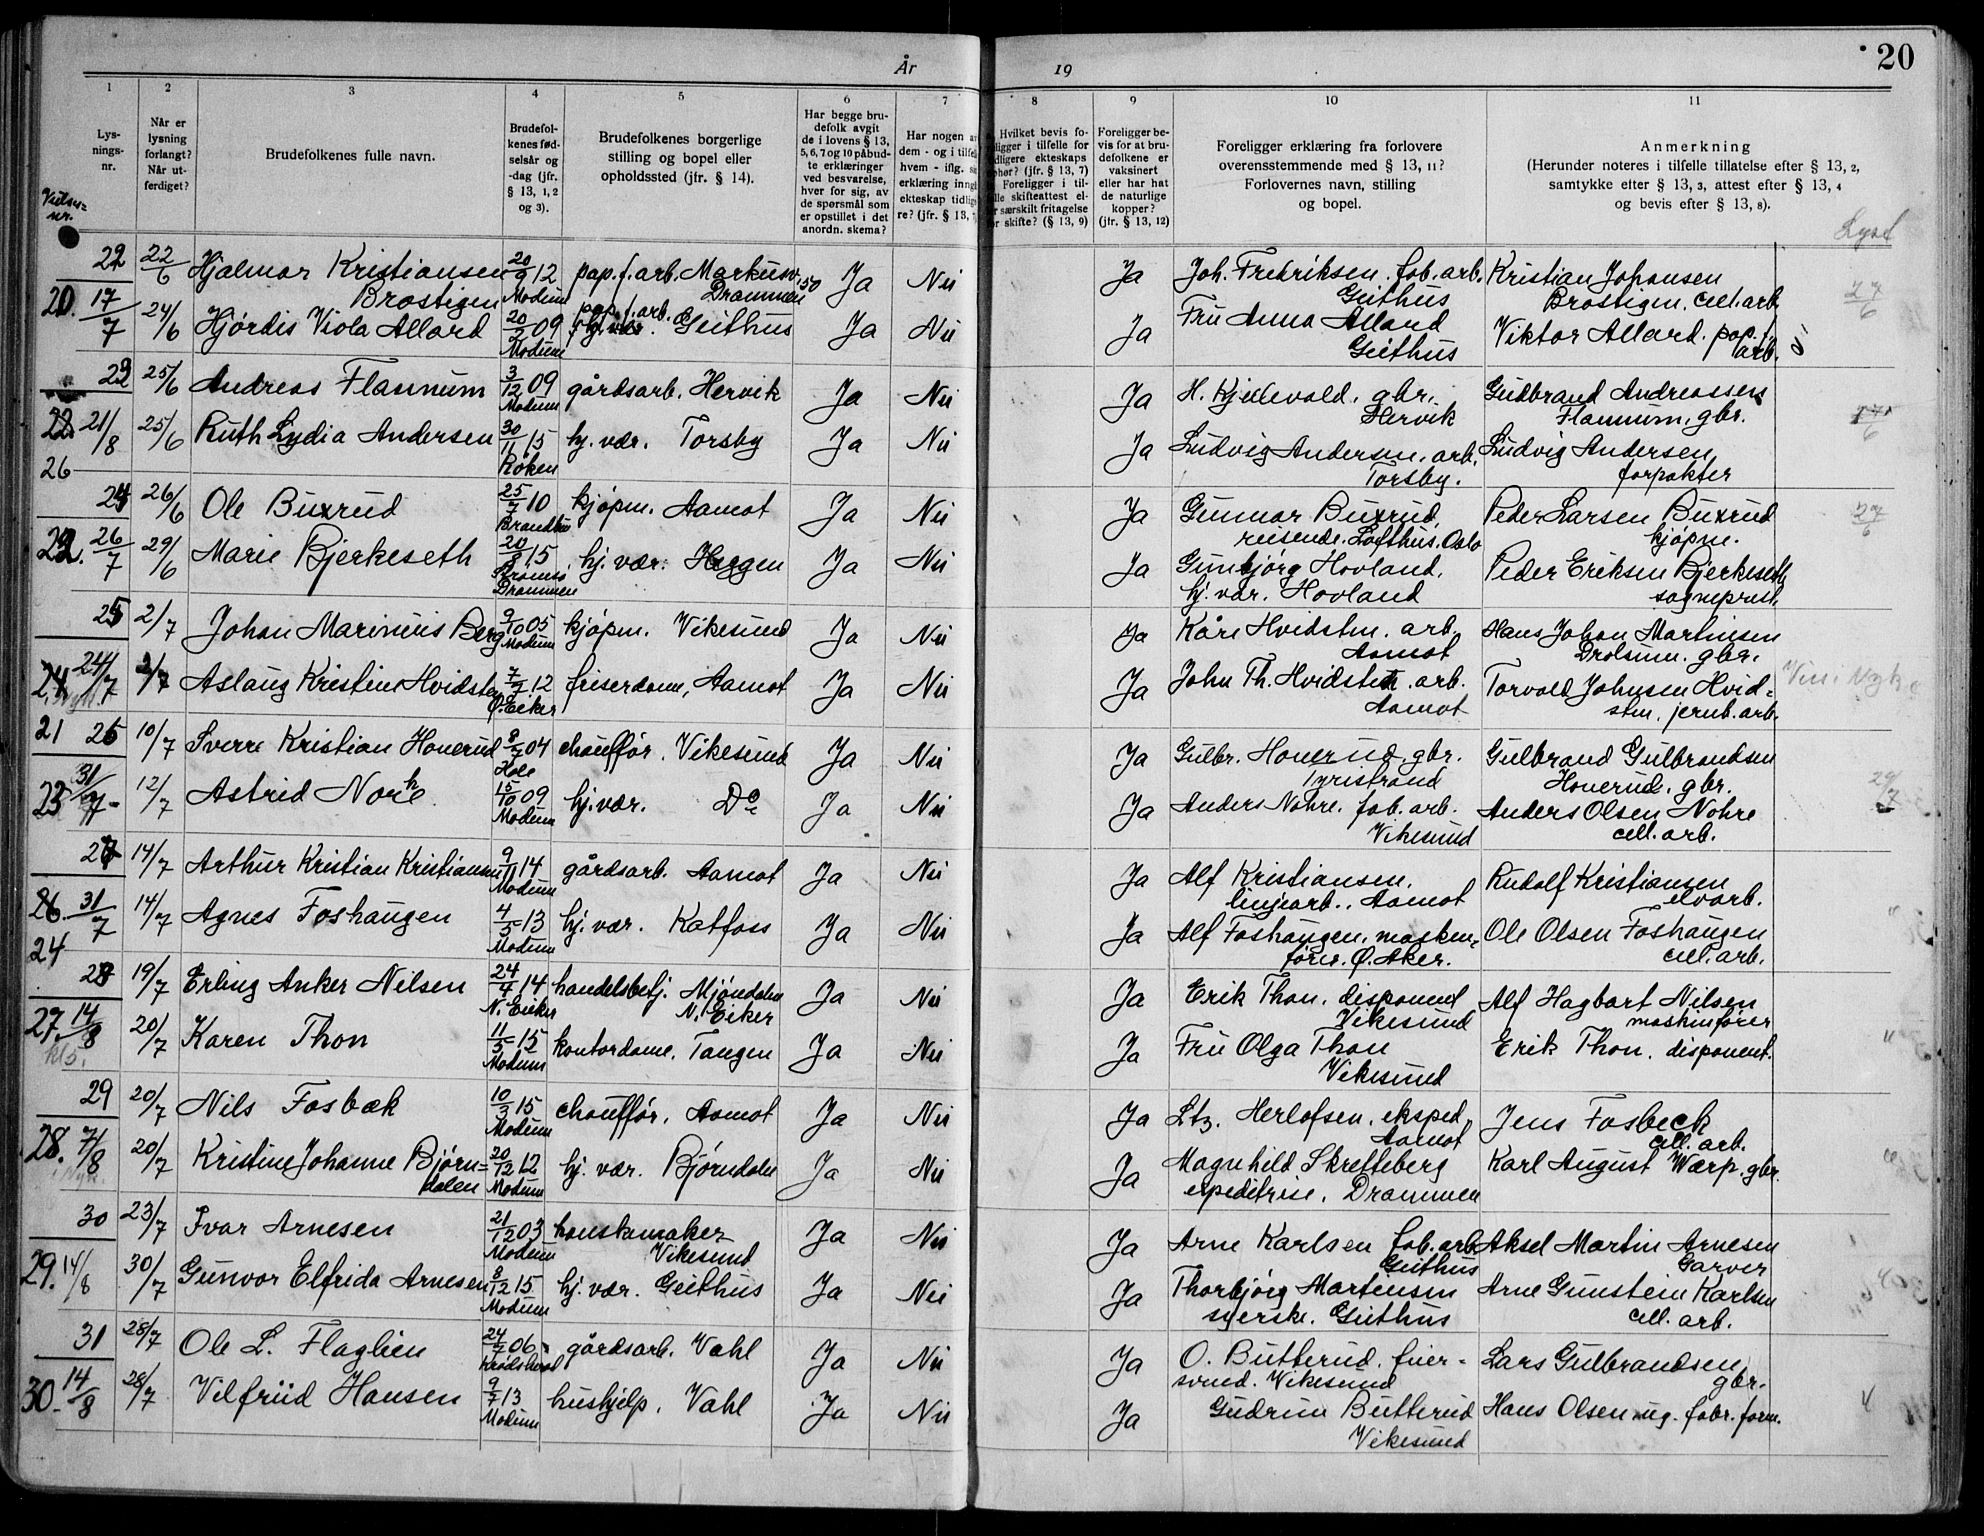 20
År 19
1 2 3 4 5 6 7 8 9 10 11
Lys-
nings-
nr.
Når er
lysning
forlangt?
Når ut-
ferdiget?
Brudefolkenes fulle navn.
Brudefol-
kenes fød-
selsår og
-dag (jfr.
§ 13, 1, 2
og 3).
Brudefolkenes borgerlige
stilling og bopel eller
opholdssted (jfr. § 14).
Har begge bru-
defolk avgit
de i lovens § 13,
5, 6, 7 og 10 påbud-
te erklæringer
ved besvarelse,
hver for sig, av
de spørsmål som
er opstillet i det
anordn. skema?
Har nogen av
dem - og i tilfelle
hvem - iflg. sin
erklæring inngå
ekteskap tidlig
re? (jfr. § 13, 7
Hvilket bevis fo-
ligger i tilfelle for
dligere ekteskaps
phør? (jfr. § 13, 7)
Foreligger i til-
lle skifteattest el-
r særskilt fritagelse
r skifte? (§ 13, 9)
Foreligger be-
vis for at bru-
defolkene er
vaksinert
eller har hat
de naturlige
kopper?
(jfr. § 13, 12)
Foreligger erklæring fra forlovere
overensstemmende med § 13, 11?
Forlovernes navn, stilling
og bopel.
Anmerkning
(Herunder noteres i tilfelle tillatelse efter § 13, 2,
samtykke efter § 13, 3, attest efter § 13, 4
og bevis efter § 13, 8).
Lyst
22 22/6 Hjalmar Kristiansen 20/9 12 pap.f.arb. Markusv. 50 Ja Nei Ja Joh. Fredriksen. fab. arb. Kristian Johansen
Brostigen Modum Drammen Geithus Brostigen, cell. arb. 27/6
20. 17/7 24/6 Hjørdis Viola Allard 20/2 09 pap.f.arb. Geithus Ja Nei Ja Fru Anna Allard Viktor Allard. pap.f.
Modum Geithus arb.
23 25/6 Andreas Flannum 3/12 09 gårdsarb. Hervik Ja Nei Ja H. Kjellevold, gbr. Gudbrand Andreassen
Modum Hervik Flannum, gbr.
21/8 25/6 Ruth Lydia Andersen 30/11 15 hj. vær. Torsby Ja Nei Ja Ludvig Andersen. arb. Ludvig Andersen,
26 Røken Torsby. forpakter
24 26/6 Ole Buxrud 25/7 10 kjøpm. Aamot Ja Nei Ja Gunnar Buxrud, Peder Larsen Buxrud 27/6
Brandbu reisende. Lofthus. Oslo kjøpm.
22. 26/7 29/6 Marie Bjerkeseth 20/9 15 hj. vær. Heggen Ja Nei Ja Gunbjørg Hovland, Peder Eriksen Bjerkeseth
Drammen hj. vær. Hovland sogneprest.
25 2/7 Johan Marinius Berg 9/10 05 kjøpm. Vikesund Ja Nei Ja Kåre Hvidsten. arb. Hans Johan Martinsen
Modum Aamot Drolsum. gbr.
24 24/7 2/7 Aslaug Kristine Hvidsten 7/7 12 friserdame, Aamot Ja Nei Ja John Th. Hvidsten. arb. Torvald Johnsen Hvid=
Ø. Eiker Aamot sten. jernb. arb.
21 26 10/7 Sverre Kristian Honerud 8/7 04 chauffør. Vikesund Ja Nei Ja Gulbr. Honerud, gbr. Gulbrand Gulbrandsen
Hole Tyristrand Honerud, gbr.
23 31/7 12/7 Astrid Nore 15/10 09 hj. vær. Do Ja Nei Ja Anders Nohre. fab. arb. Anders Olsen Nohre
Modum Vikesund cell. arb.
27 14/7 Arthur Kristian Kristiansen 9/11 14 gårdsarb. Aamot Ja Nei Ja Alf Kristiansen. Rudolf Kristiansen
Modum linjearb., Aamot elvarb.
26. 31/7 14/7 Agnes Foshaugen 4/5 13 hj. vær. Katfoss Ja Nei Ja Alf Foshaugen, maskin= Ole Olsen Foshaugen
24 Modum fører. Ø. Aker. cell. arb.
28 19/7 Erling Anker Nilsen 24/4 14 handelsbetj. Mjøndalen Ja Nei Ja Erik Thon, disponent Alf Hagbart Nilsen
N. Eiker N. Eiker Vikesund maskinfører
27. 14/8 20/7 Karen Thon 11/5 15 kontordame. Tangen Ja Nei Ja Fru Olga Thon Erik Thon. disponent.
kl 5. Modum Vikesund
29 20/7 Nils Fosbæk 10/3 15 chauffør. Aamot Ja Nei Ja Ltz. Herlofsen, eksped. Jens Fosbeck
Modum Aamot cell. arb.
28. 7/8 20/7 Kristine Johanne Bjørn= 20/12 12 hj. vær. Bjørndalen Ja Nei Ja Magnhild Skretteberg Karl August Wærp. gbr.
dalen Modum expeditrise. Drammen
30 23/7 Ivar Arnesen 21/12 03 hanskemaker Ja Nei Ja Arne Karlsen fab. arb. Aksel Martin Arnesen
Modum Vikesund Geithus Garver
29. 14/8 30/7 Gunvor Elfrida Arnesen 8/12 15 hj. vær. Geithus Ja Nei Ja Thorbjørg Martinsen Arne Gunstein Karlsen
Modum syerske. Geithus cell. arb.
31 28/7 Ole L. Flaglien 24/7 06 gårdsarb. Vahl Ja Nei Ja O. Butterud. feier- Lars Gulbrandsen
Krødsherad svend. Vikesund gbr.
30. 14/8 28/7 Vilfrid Hansen 9/7 13 hushjelp. Vahl Ja Nei Ja Gudrun Butterud Hans Olsen ug. fabr. form.
Modum Vikesund